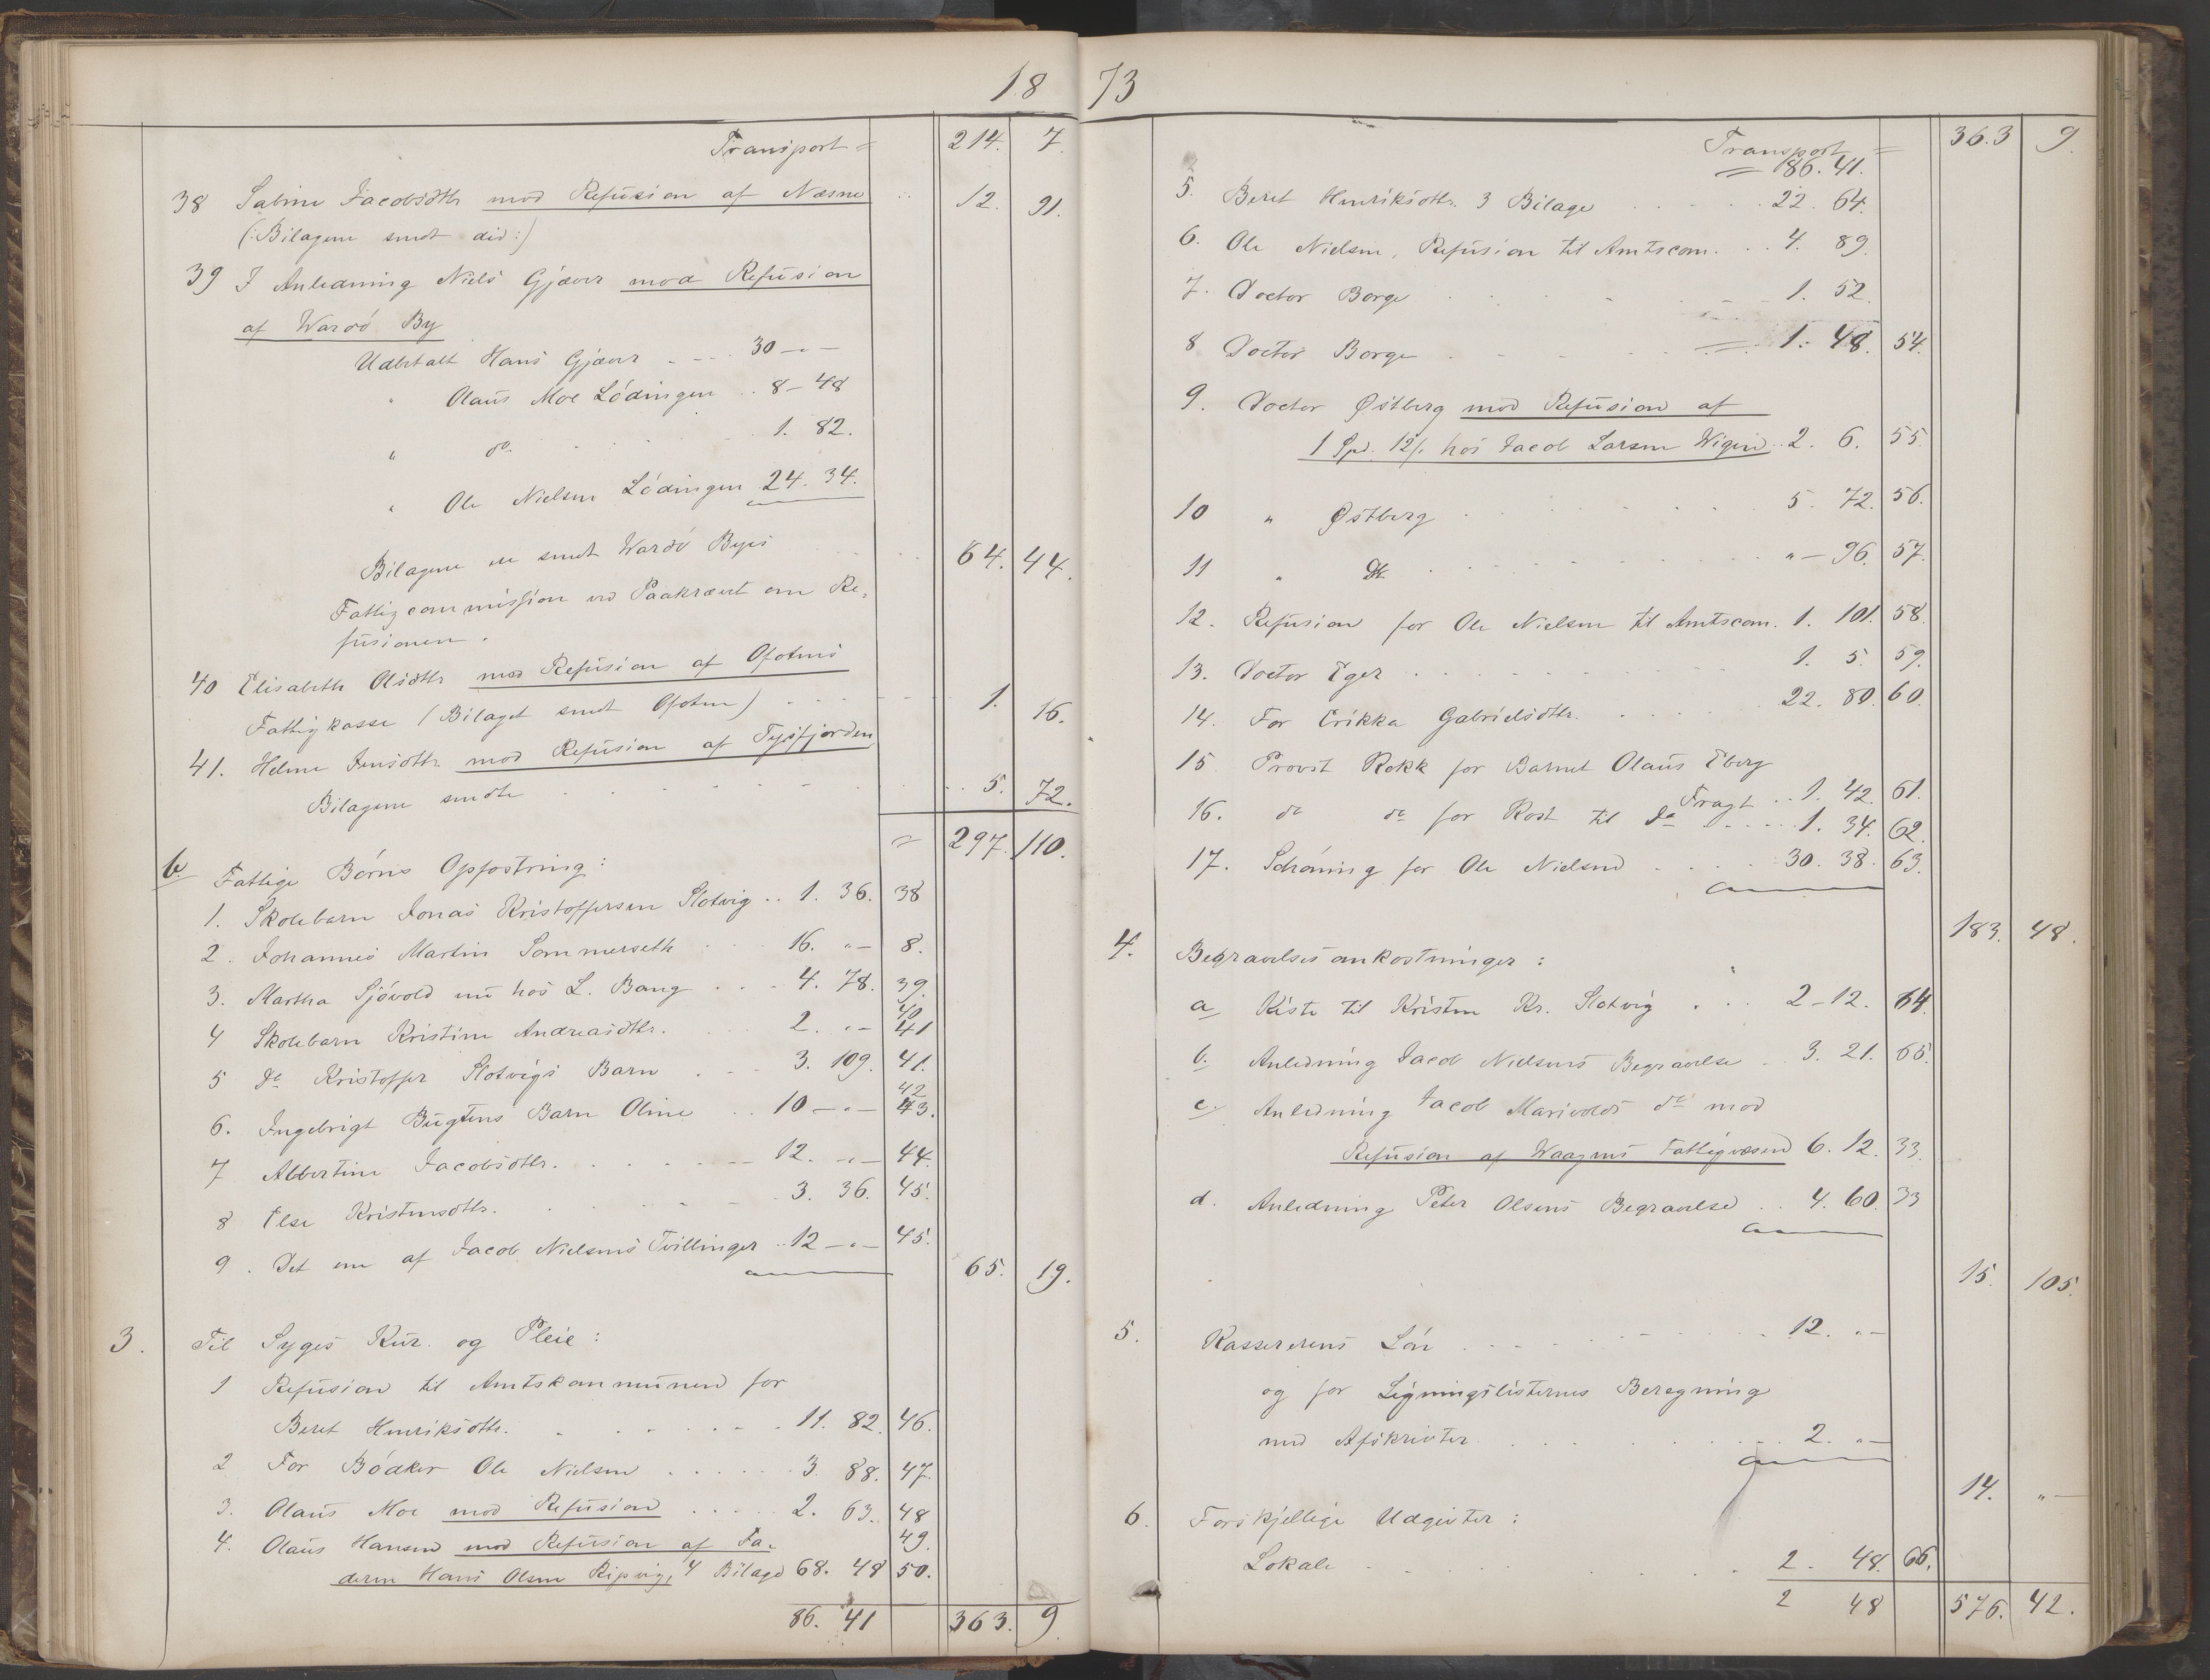 18 73
Transport = 214. 7.
38 Sabine Jacobsdtr mod Refusion af Næsne 12. 91.
(: Bilagene sendt did :)
39 I Anledning Niels Gjæver mod Refusion
af Wardö By
Udbetalt Hans Gjæver 30 – " –
" Olaus Moe Lödingen 8 – 48
" do 1. 82.
" Ole Nielsen Lödingen 24. 34.
Bilagene ere sendt Wardö Byes 64. 44.
Fattigcommission ved Paakrævet om Re-
fusionen.
40 Elisabeth Olsdtr mod Refusion af Ofotens
Fattigkasse (Bilaget sendt Ofoten) 1. 16.
41. Helene Jensdtr. mod Refusion af Tysfjorden
Bilagene sendte 5. 72.
= 297. 110.
b. Fattige Børns Opfostring:
1. Skolebarn Jonas Kristoffersen Slotvig 1. 36. 38
2. Johannes Martin Sommerseth 16. " – 8.
3. Martha Sjövold nu hos L. Bang 4. 78. 39.
40
4 Skolebarn Kristine Andreasdtr. 2. " – 41
5 do Kristoffer Slotvigs Barn 3. 109. 41.
42
6. Ingebrigt Bugtens Barn Oline 10 – " – 43.
7 Albertine Jacobsdtr. 12. – " – 44.
8 Else Kristensdtr. 3. 36. 45.
9. Det ene af Jacob Nielsens Tvillinger 12 – " – 45.
65. 19.
3. Til Syges Kur og Pleie:
1 Refusion til Amtskommunen for
Beret Henriksdtr. 11. 82. 46.
2 For Bödker Ole Nielsen 3. 88. 47.
3. Olaus Moe mod Refusion 2. 63. 48
4. Olaus Hansen mod Refusion af Fa- 49.
deren Hans Olsen Ripvig, 4 Bilage 68. 48 50.
86. 41 363. 9.
Transport = 363 9.
= 86. 41.
5. Beret Henriksdtr. 3 Bilage 22. 64.
6. Ole Nielsen, Refusion til Amtscom. 4. 89.
7. Doctor Borge 1. 52.
8 Doctor Borge 1. 48. 54.
9. Doctor Østberg mod Refusion af
1 Spd. 12 /. hos Jacob Larsen Wigen 2. 6. 55.
10 " Østberg 5. 72. 56.
11 " Do " – 96. 57.
12. Refusion for Ole Nielsen til Amtscom. 1. 101. 58.
13. Doctor Eger 1. 5. 59.
14. For Erikka Gabrielsdtr. 22. 80. 60.
15 Provst Rokk for Barnet Olaus Eberg
Fragt 1. 42. 61.
16. do do for Kost til do 1. 34. 62.
17. Schröning for Ole Nielsen 30. 38. 63.
183. 48.
4. Begravelsesomkostninger:
a Kiste til Kristen Kr. Slotvig 2 – 12. 64.
b. Anledning Jacob Nielsens Begravelse 3. 21. 65.
c. Anledning Jacob Marivolds do mod
Refusion af Waagens Fattigvæsen 6. 12. 33.
d. Anledning Peter Olsens Begravelse 4. 60. 33
15. 105.
5. Kassererens Lön 12. " –
og for Ligningslisternes Beregning
med Afskrivter 2. " –
14. " –
6. Forskjellige Udgivter:
Lokale 2. 48. 66.
2 48 576. 42.